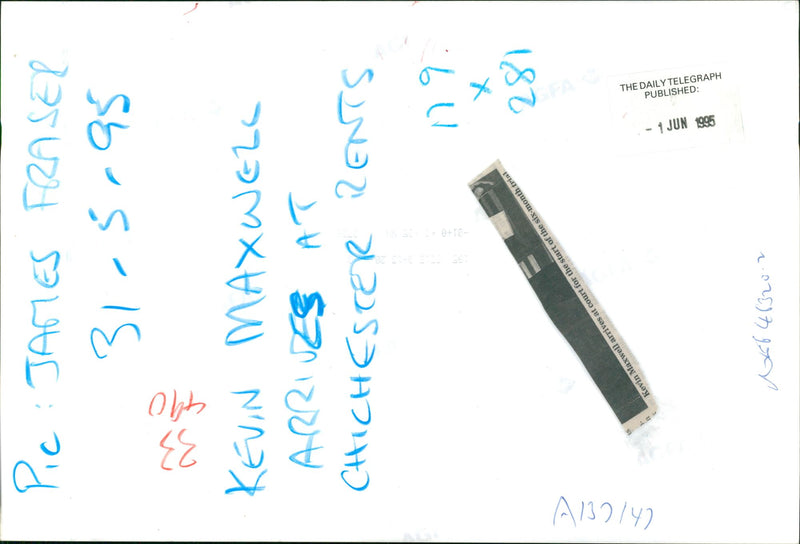 Pic: JAMES FRASER
31-5-95
KEVIN MAXWELL
ARRIVES AT
CHICHESTER RENTS
33
490
n9
x
281
THE DAILY TELEGRAPH
PUBLISHED:
- 1 JUN 1995
Kevin Maxwell arrives at court for the start of the six-month trial
A137/47